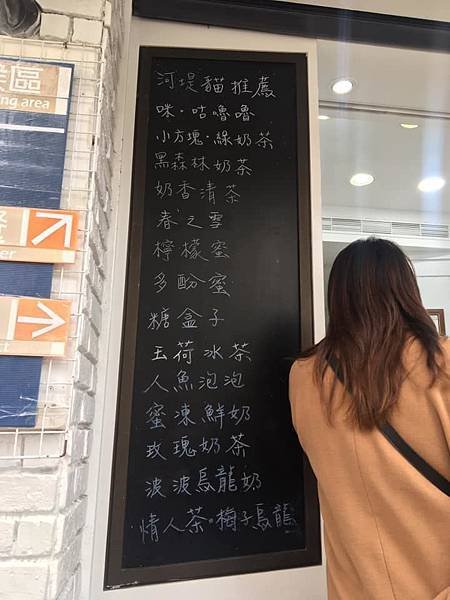 區
ng area
河堤貓推薦
咪·咕嚕嚕
小方塊·綠奶茶
黑森林奶茶
奶香清茶
春之雪
檸檬蜜
多酚蜜
糖盒子
玉荷冰茶
人魚泡泡
蜜凍鮮奶
玫瑰奶茶
波波烏龍奶
情人茶·梅子烏龍